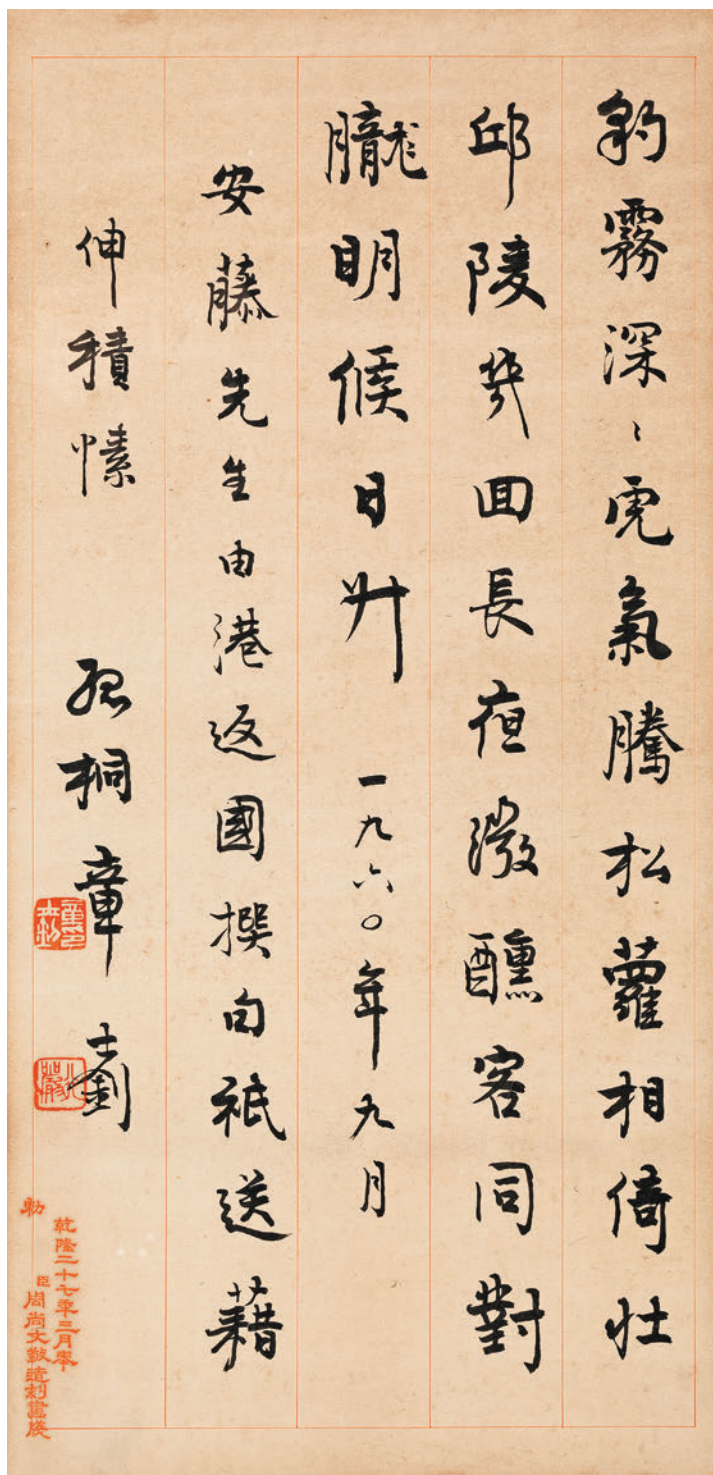 豹霧深〻虎氣騰松蘿相倚壯
邱陵幾回長夜微醺客同對
朧明候日昇 一九六〇年九月
安藤先生由港返國撰句祇送藉
伸積愫 孤桐章士釗
章印士釗
乾隆二十七年三月奉
勅 臣周尚文敬造刻畫牋